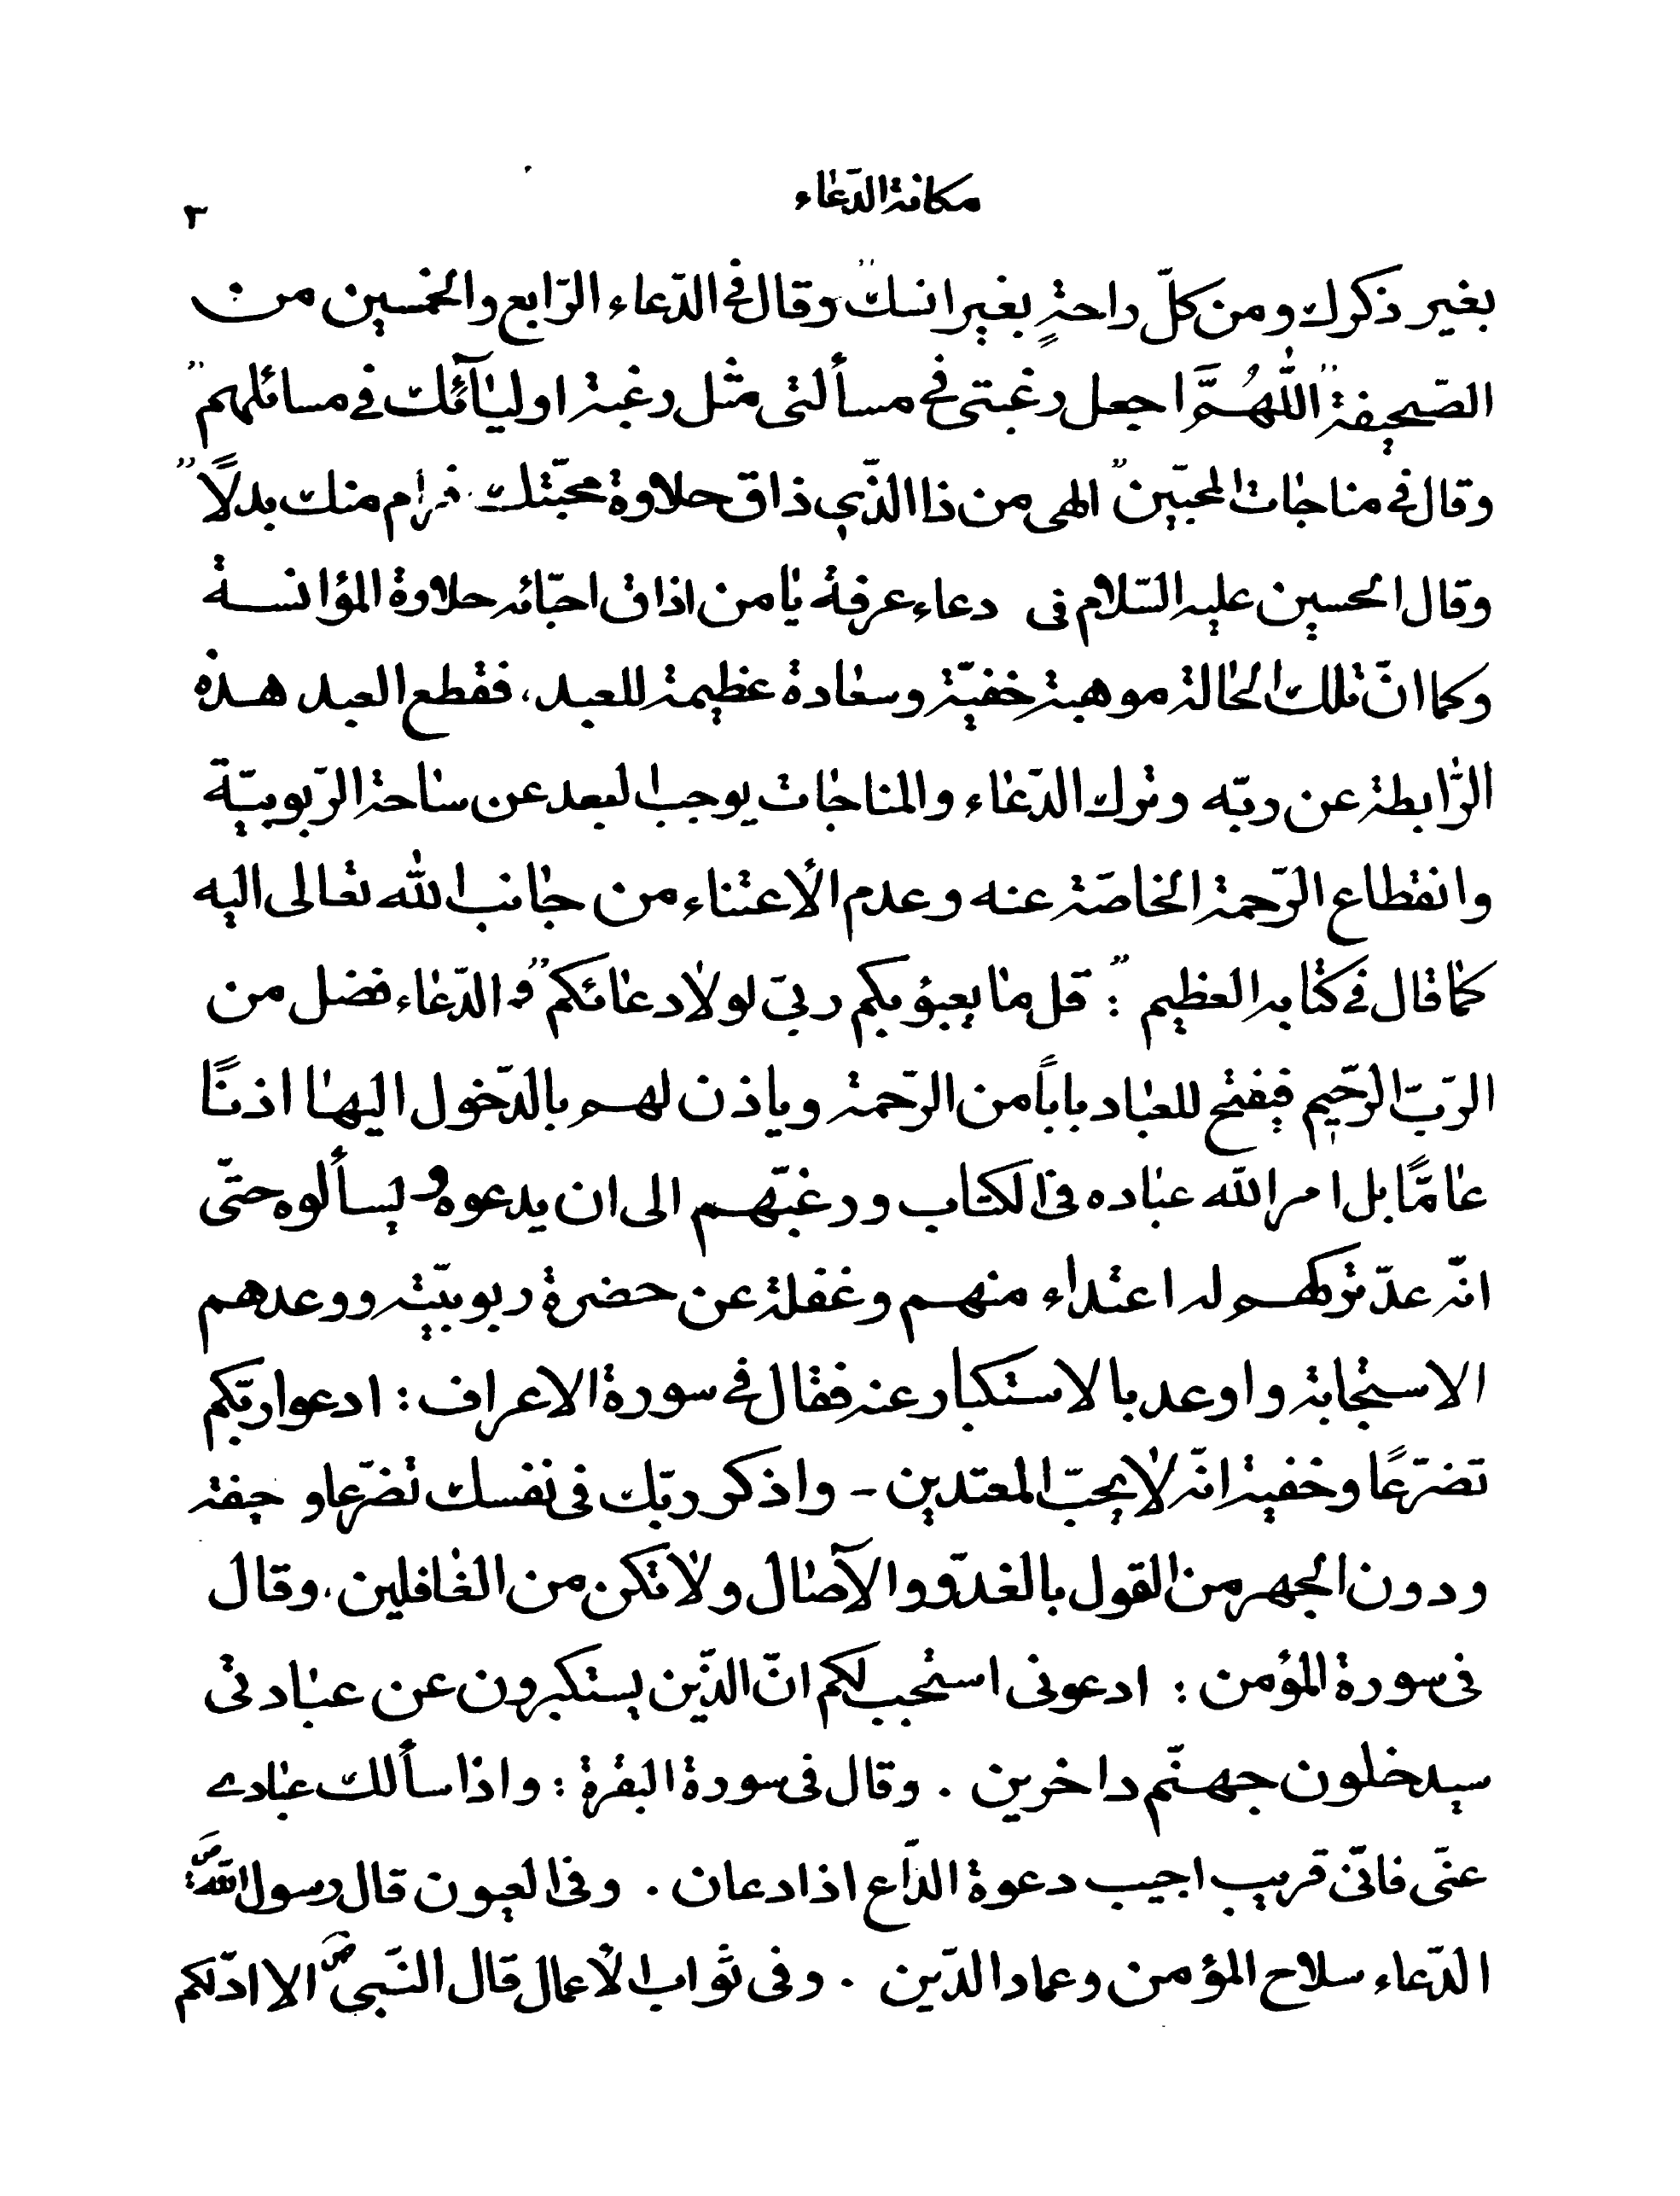 مكانة الدّعاء
٣
بغير ذكرك ومن كلّ راحةٍ بغير انسك" وقال في الدّعاء الرّابع والخمسين من
الصّحيفة "اللّهُمَّ اجعل رغبتي في مسألتي مثل رغبة اوليآئك في مسائلهم"
وقال في مناجات المحبّين" الهي من ذا الّذي ذاق حلاوة محبّتك فرام منك بدلاً"
وقال الحسين عليه السّلام في دعاء عرفة يا من اذاق احبّائه حلاوة المؤانسة
وكما انّ تلك الحالة موهبة خفيّة وسعادة عظيمة للعبد، فقطع العبد هذه
الرّابطة عن ربّه وترك الدّعاء والمناجات يوجب البعد عن ساحة الرّبوبيّة
وانقطاع الرّحمة الخاصّة عنه وعدم الأعتناء من جانب الله تعالى اليه
كما قال في كتابه العظيم ": قل ما يعبؤ بكم ربيّ لولا دعائكم" و الدّعاء فضل من
الربّ الرّحيم فيفتح للعباد باباً من الرّحمة وياذن لهم بالدّخول اليها اذنًا
عامًّا بل امر الله عباده في الكتاب ورغبّهم الى ان يدعوه و يسألوه حتّى
انّه عدّ تركهم له اعتداء منهم وغفلة عن حضرة ربوبيّته ووعدهم
الاستجابة واوعد بالاستكبار عنه فقال في سورة الاعراف : ادعوا ربّكم
تضرّعًا وخفية انّه لا يحبّ المعتدين - واذكر ربّك في نفسك تضرّعا و خيفة
ودون الجهر من القول بالغدّو والآصال ولا تكن من الغافلين، وقال
في سورة المؤمن : ادعوني استجب لكم انّ الّذين يستكبرون عن عبادتي
سيدخلون جهنّم داخرين . وقال في سورة البقرة : واذا سألك عبادي
عنّي فانّي قريب اجيب دعوة الدّاع اذا دعان . وفي العيون قال رسول اللهّ ص
الدّعاء سلاح المؤمن وعماد الدّين . وفي ثواب الأعمال قال النّبي ص الا ادّلكم